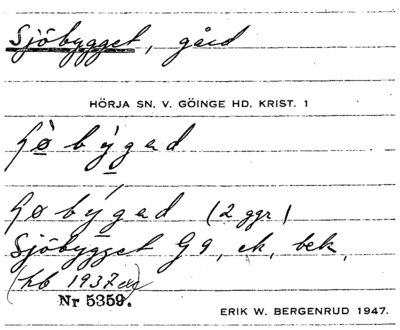 Sjöbygget, gård
HÖRJA SN, V. GÖINGE HD, KRIST. 1
býged
býged (2 ggr)
Sjöbygget Gg, ek, bek,
1937
Nr 5359.
ERIK W. BERGENRUD 1947.